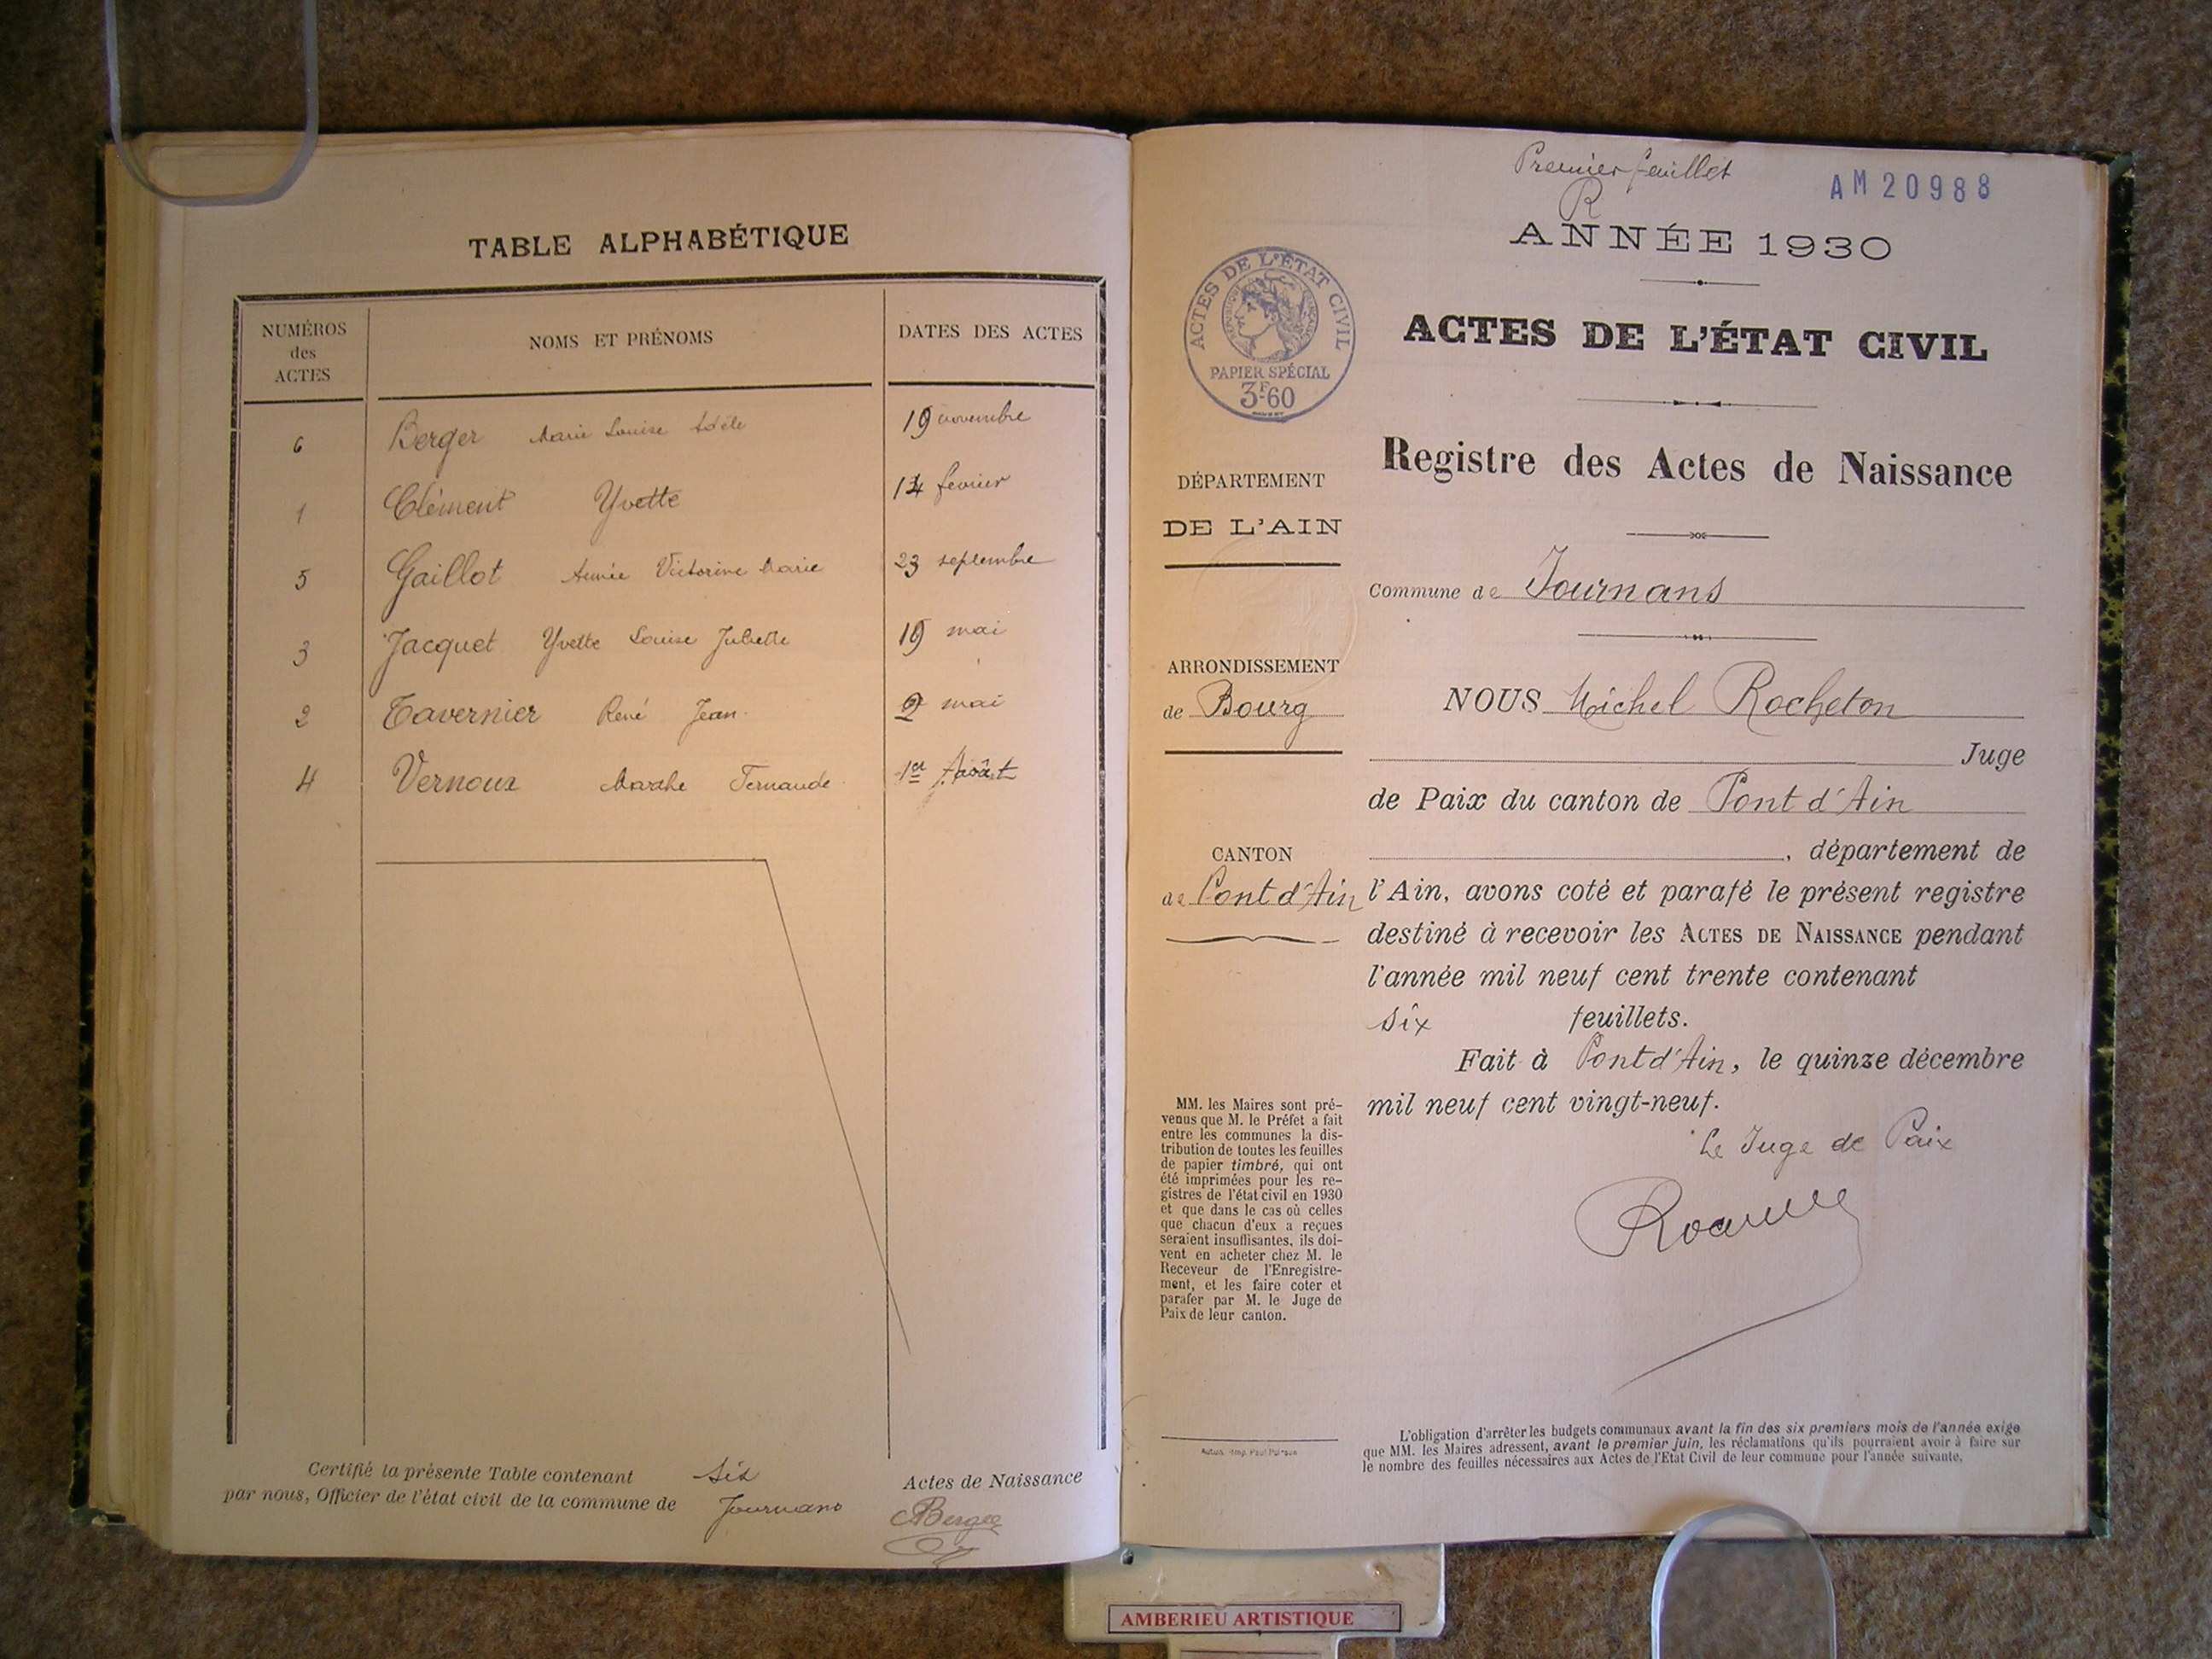 TABLE ALPHABÉTIQUE
NUMÉROS
des
ACTES
NOMS ET PRÉNOMS
DATES DES ACTES
6 Berger Marie Louise Adèle 19 novembre
1 Clément Yvette 14 fevrier
5 Gaillot Aimée Victorine Marie 23 septembre
3 Jacquet Yvette Louise Juliette 19 mai
2 Tavernier René Jean 2 mai
4 Vernoux Marthe Fernande 1er Août
Certifié la présente Table contenant six Actes de Naissance
par nous, Officier de l'état civil de la commune de Journans
Berger
Premier feuillet
R
AM 20988
ANNÉE 1930
ACTES DE L'ÉTAT CIVIL
PAPIER SPÉCIAL
3F60
ACTES DE L'ÉTAT CIVIL
Registre des Actes de Naissance
DÉPARTEMENT
DE L'AIN
Commune de Journans
ARRONDISSEMENT
de Bourg
CANTON
de Pont d'Ain
NOUS Michel Rocheton
Juge
de Paix du canton de Pont d'Ain
, département de
l'Ain, avons coté et parafé le présent registre
destiné à recevoir les ACTES DE NAISSANCE pendant
l'année mil neuf cent trente contenant
six feuillets.
Fait à Pont d'Ain, le quinze décembre
mil neuf cent vingt-neuf.
Le Juge de Paix
MM. les Maires sont pré-
venus que M. le Préfet a fait
entre les communes la dis-
tribution de toutes les feuilles
de papier timbré, qui ont
été imprimées pour les re-
gistres de l'état civil en 1930
et que dans le cas où celles
que chacun d'eux a reçues
seraient insuffisantes, ils doi-
vent en acheter chez M. le
Receveur de l'Enregistre-
ment, et les faire coter et
parafer par M. le Juge de
Paix de leur canton.
L'obligation d'arrêter les budgets communaux avant la fin des six premiers mois de l'année exige
que MM. les Maires adressent, avant le premier juin, les réclamations qu'ils pourraient avoir à faire sur
le nombre des feuilles nécessaires aux Actes de l'Etat Civil de leur commune pour l'année suivante.
AMBERIEU ARTISTIQUE